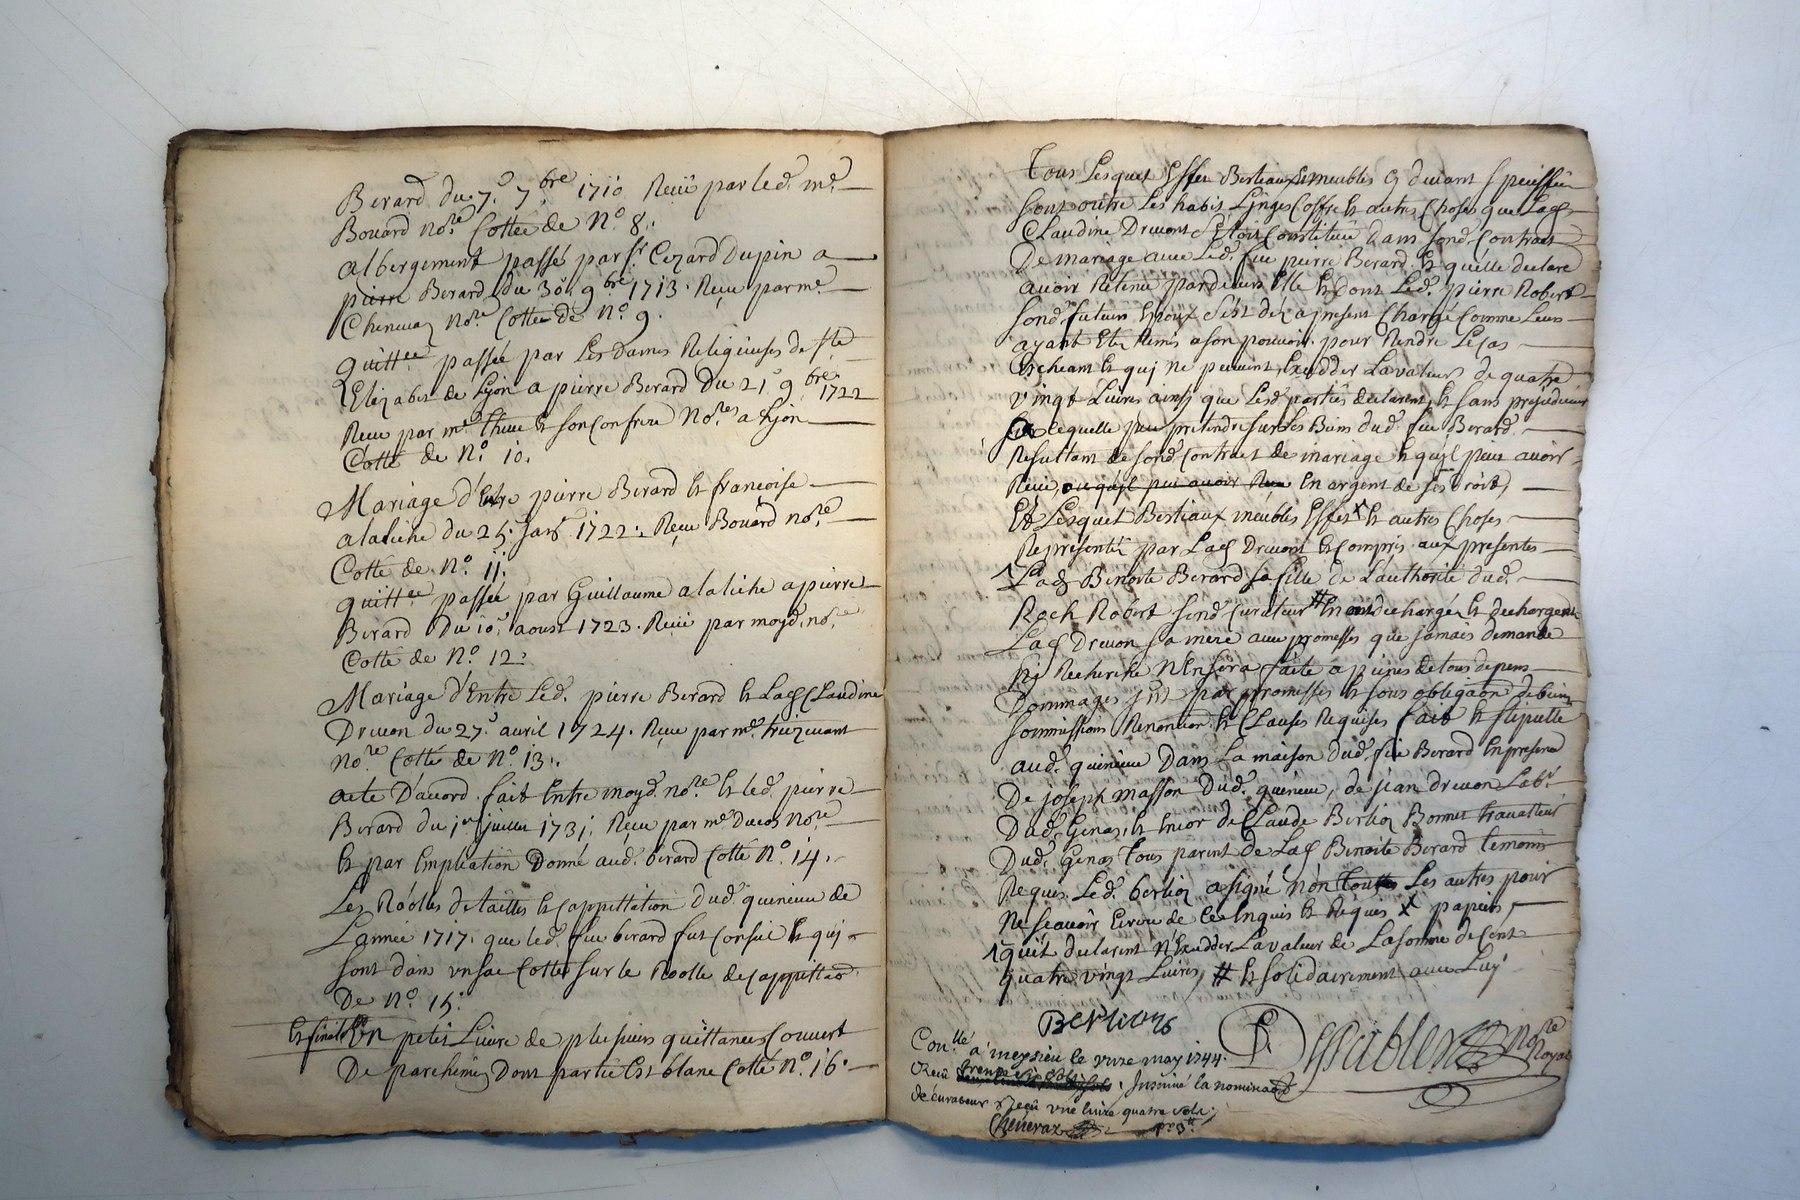 Berard du 7e 7bre 1710 Reçû par led. me.
Bouard nore Cottée de No 8.
albergement passé par sr Cezard Dupin a
pierre Berard du 30e 9bre 1713. Reçu par me.
Chenevaz nore Cottée de No. 9.
quittce passée par Les Dames Religieuses de ste
Elizabet de Lyon a pierre Berard Du 21e 9bre 1722
Reçu par me. et son Confrere Nores a Lyon
Cotté de No. 10.
Mariage d'Entre pierre Berard et francoise
alaliche du 25e janr 1722. Reçu Bouard nore
Cotté de No. 11.
quittce passée par Guillaume alaliche a pierre
Berard Du 10e aoust 1723. Reçu par moyd. nore
Cotté de No. 12.
Mariage d'Entre Led. pierre Berard et Lad. Claudine
Drevon du 27e avril 1724. Reçu par me.
nore Cotté de No. 13.
acte D'acord fait Entre moyd. nore et led. pierre
Berard du 1er juillet 1731. Reçu par me nore
et par Empliation Donné aud. berard Cotté No. 14.
Les Roolles de tailles et cappittation dud. quincieu de
L'année 1717. que led. feu berard fut Consul et qui
sont dans un sac Cottés sur le Roolle de cappittaon
De No. 15.
Et finalt Un petit Livre de plusieurs quittances Couvert
De parchemin Dont partie Est blanc Cotté No. 16.
Tous Lesquels Effets Bestiaux Meubles cy devant
sont outre Les habits Linges Coffre et autres Choses que Lad.
Claudine Drevont s'Etoit Constituée Dans sond. Contract
De mariage avec Led. feu pierre Berard et qu'elle declare
avoir Retenu pardevers Elle et Dont Led. pierre Robert
sond. futeur Epoux s'est déja present Chargé Comme Leurs
ayant Eté Remis a son pouvoir pour Rendre Le cas
Echeant et qui ne peuvent Exedder La valeur de quatre
vingt Livres ainsy que Lesd. parties declarent et sans prejudicier
lequelle peu pretendre sur Les Biens dud. feu Berard
Resultant de sond. Contract de mariage et qu'jl peut avoir
Reçu ou qu'jl peu avoir Reçu En argent de ses droits,
Et Lesquels Bestiaux meubles Effets X et autres Choses
Representés par Lad. Drevont et Compris aux presentes
Lad. Benoite Berard sa fille de L'authorité dud.
Roch Robert sond. Curateur # En ont dechargé et dechargent
Lad. Drevon sa mere avec promesses que jamais demande
ny Recherche N'En sera faite a peines de tous depens
Dommages jnt par promesses et sous obligaon de biens
sommissions Renontion et Clauses Requises fait et stipullé
aud. quincieu Dans La maison dud. feu Berard En presence
De joseph Masson Dud. quincieu, de jean drevon Labr
Dud. Genas, et Encor de Claude Berlioz Bonnet travailleur
Dud. Genas tous parent de Lad. Benoite Berard temoins
Requis Led. berlioz a signé non toutes Les autres pour
Ne sçavoir Ecrire de ce Enquis et Requis X papiers,
qu'ils declarent N'Exedder La valeur de La somme de Cent
quatre vingt Livres, # et solidairement avec Luy
Berlioz
Despablen nore Royal
Conllé a meysieu le may 1744.
Reçu trente six sols. Jnsinué la nominaon
de curateur Reçû une livre quatre sols.
Cheneraz